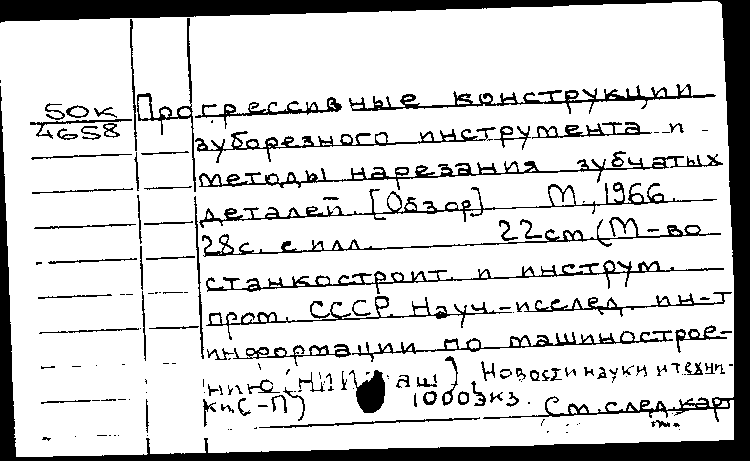 50к Прогрессивные конструкции
4658 зуборезного инструмента и
методы нарезания зубчатых
деталей. [Обзор]. М., 1966.
28с. с илл. 22см. (М-во
станкостроит. и инструм.
пром. СССР. Науч.-исслед. ин-т
информации по машинострое-
нию (НИИмаш). Новости науки и техни-
ки. С-П) 1000экз. См. след. карт